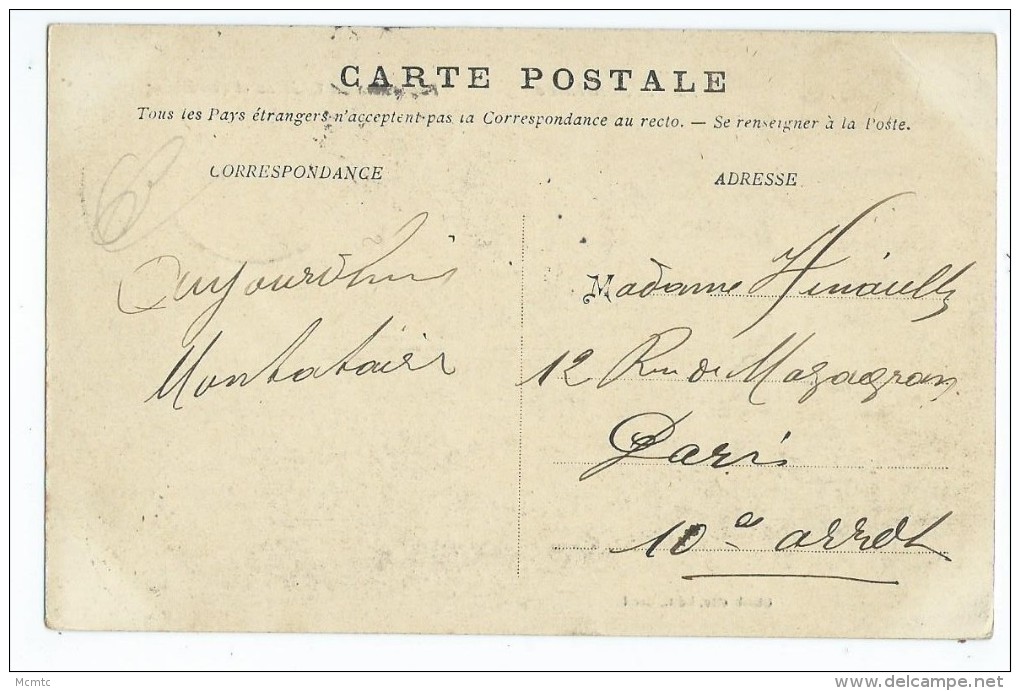 CARTE POSTALE
Tous les Pays étrangers n'acceptent pas la Correspondance au recto. — Se renseigner à la Poste.
CORRESPONDANCE
ADRESSE
Aujourd'hui
Montataire
Madame Hinault
12 Rue de Mazagran
Paris
10e arrdt
Mcmtc
www.delcampe.net